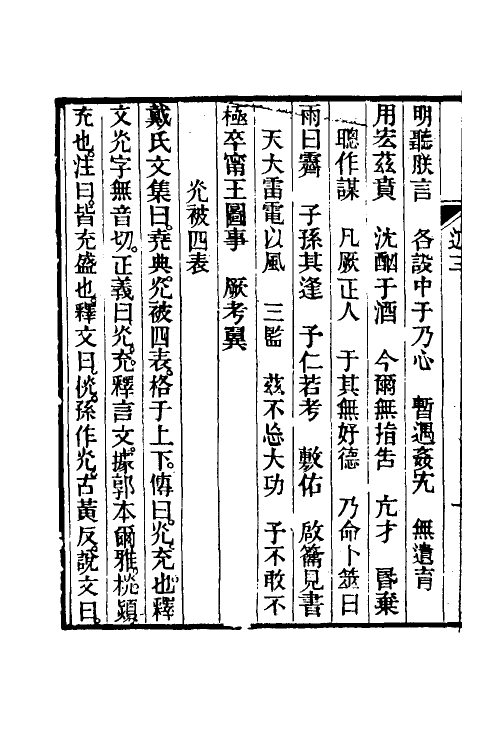 明聽朕言　各設中于乃心　暫遇姦宄　無遺育
用宏茲賁　沈酗于酒　今爾無指告　亢才　昬棄
聰作謀　凡厥正人　于其無好德　乃命卜筮曰
雨曰霽　子孫其逢　予仁若考　敷佑　啟籥見書
天大雷電以風　三監　茲不忘大功　予不敢不
極卒甯王圖事　厥考翼
光被四表
戴氏文集曰。堯典。光被四表。格于上下。傳曰。光。充也。釋
文光字無音切。正義曰。光。充。釋言文。據郭本爾雅。桄熲
充也。注曰。皆充盛也。釋文曰。桄。孫作光。古黃反。說文曰。